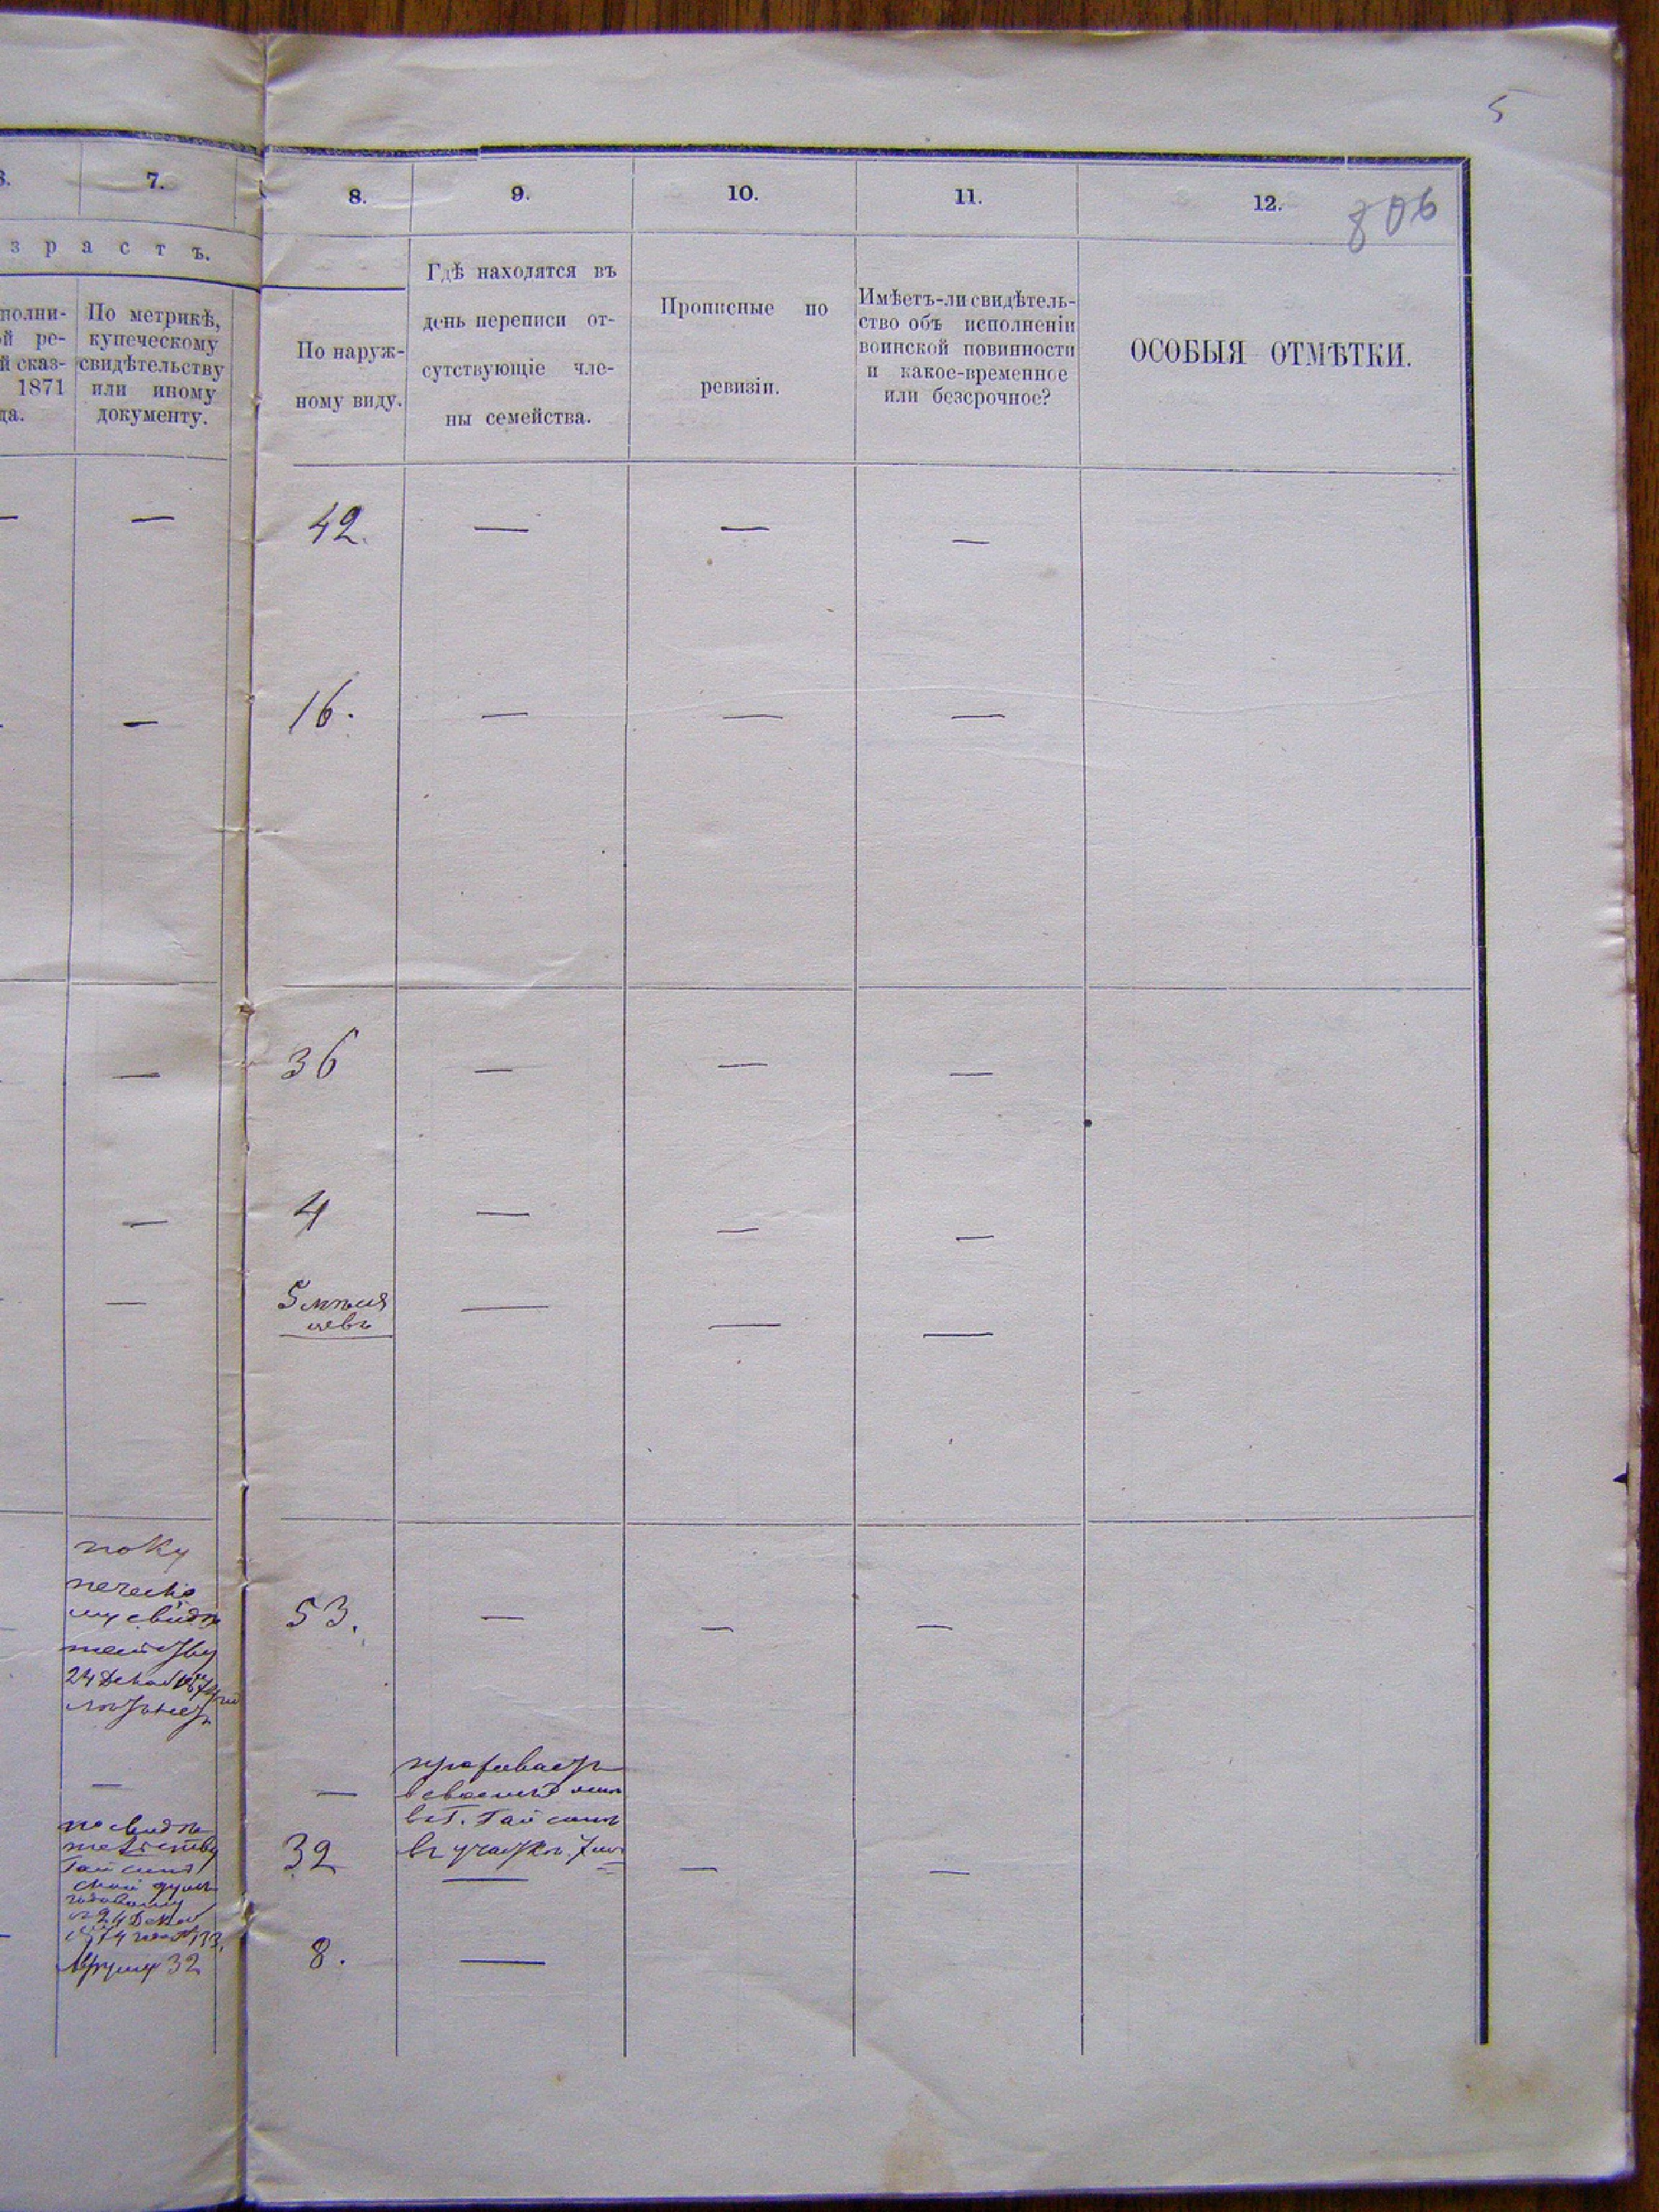 5
7.
8.
9.
10.
11.
12.
806
з р а с т ъ.
полни-
й ре-
й сказ-
1871
да.
По метрикѣ,
купеческому
свидѣтельству
или иному
документу.
По наруж-
ному виду.
Гдѣ находятся въ
день переписи от-
сутствующіе чле-
ны семейства.
Прописные по
ревизіи.
Имѣетъ-ли свидѣтель-
ство объ исполненіи
воинской повинности
и какое-временное
или безсрочное?
ОСОБЫЯ ОТМѢТКИ.
— — 42. — — —
— 16. — — —
— 36 — — —
— 4 — — —
— 5 мѣся — — —
цевъ
поку
печеско
му свидѣ
тельству
24 Декаб 1874
53. — — —
— —
проживаетъ
въ г. Гайсинѣ
въ участкѣ
по свидѣ
тельству
Гайсинс
ской думы
24 Декаб
32
32 — — —
8. —